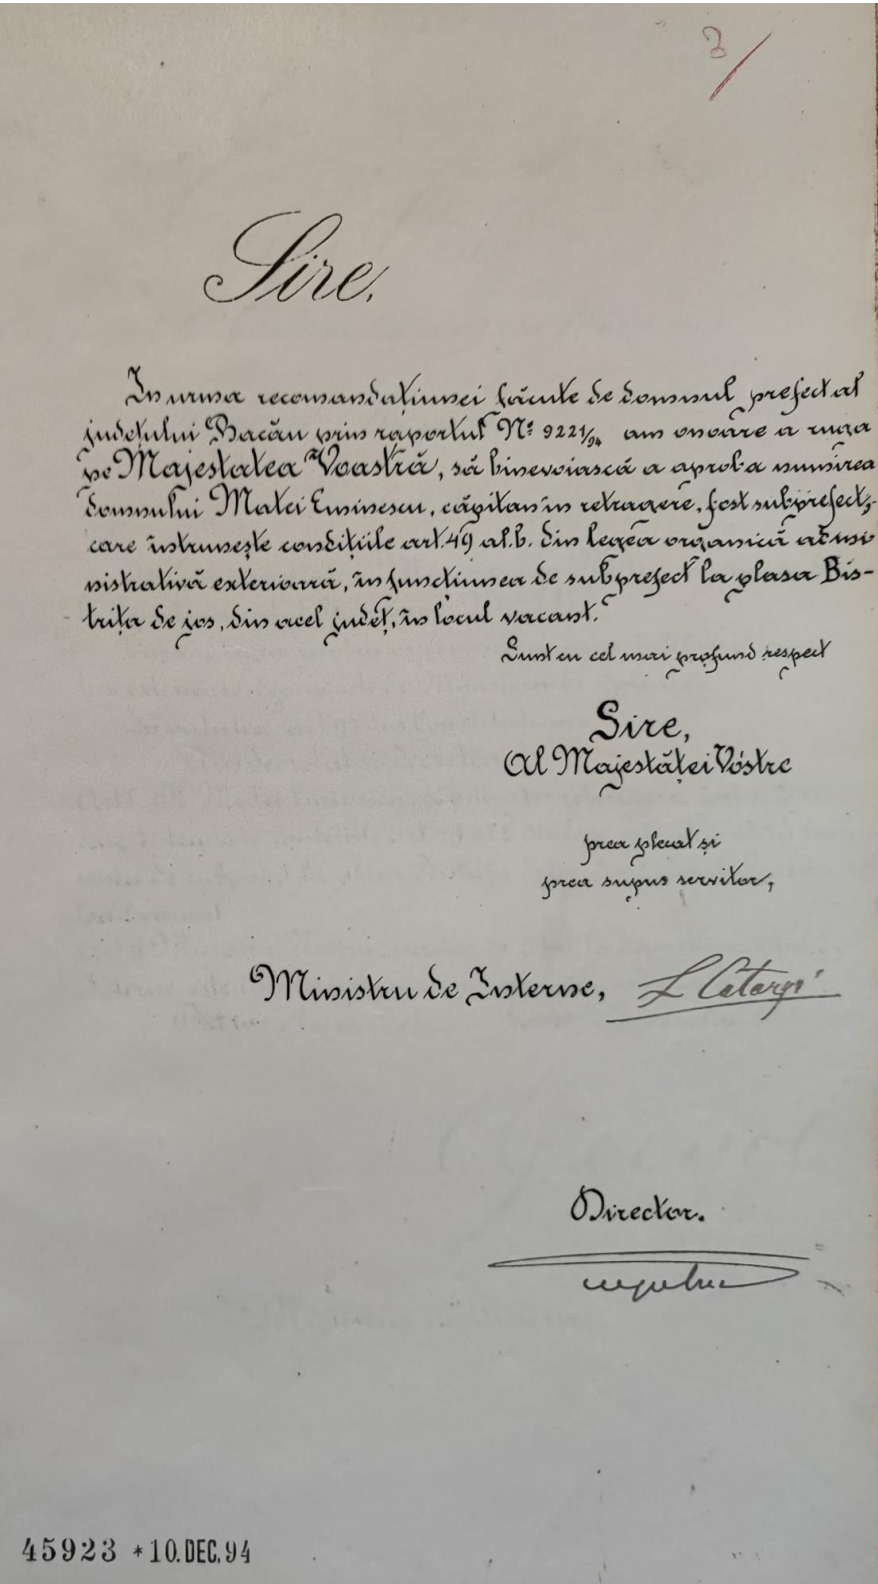 3
Sire,
In urma recomandațiunei făcute de domnul prefect al
județului Bacău prin raportul Nº 9221/94 am onoare a ruga
pe Majestatea Voastră, să binevoiască a aproba numirea
domnului Matei Eminescu, căpitan în retragere, fost subprefect,
care întrunește condițiile art. 49 al. b. din legea organică admi
nistrativă exterioară, în funcțiunea de subprefect la plasa Bis-
trița de jos, din acel județ, în locul vacant.
Sunt cu cel mai profund respect
Sire,
Al Majestăței Vóstre
prea plecat și
prea supus servitor,
Ministru de Interne, L Catargi
Director.
45923 * 10. DEC. 94